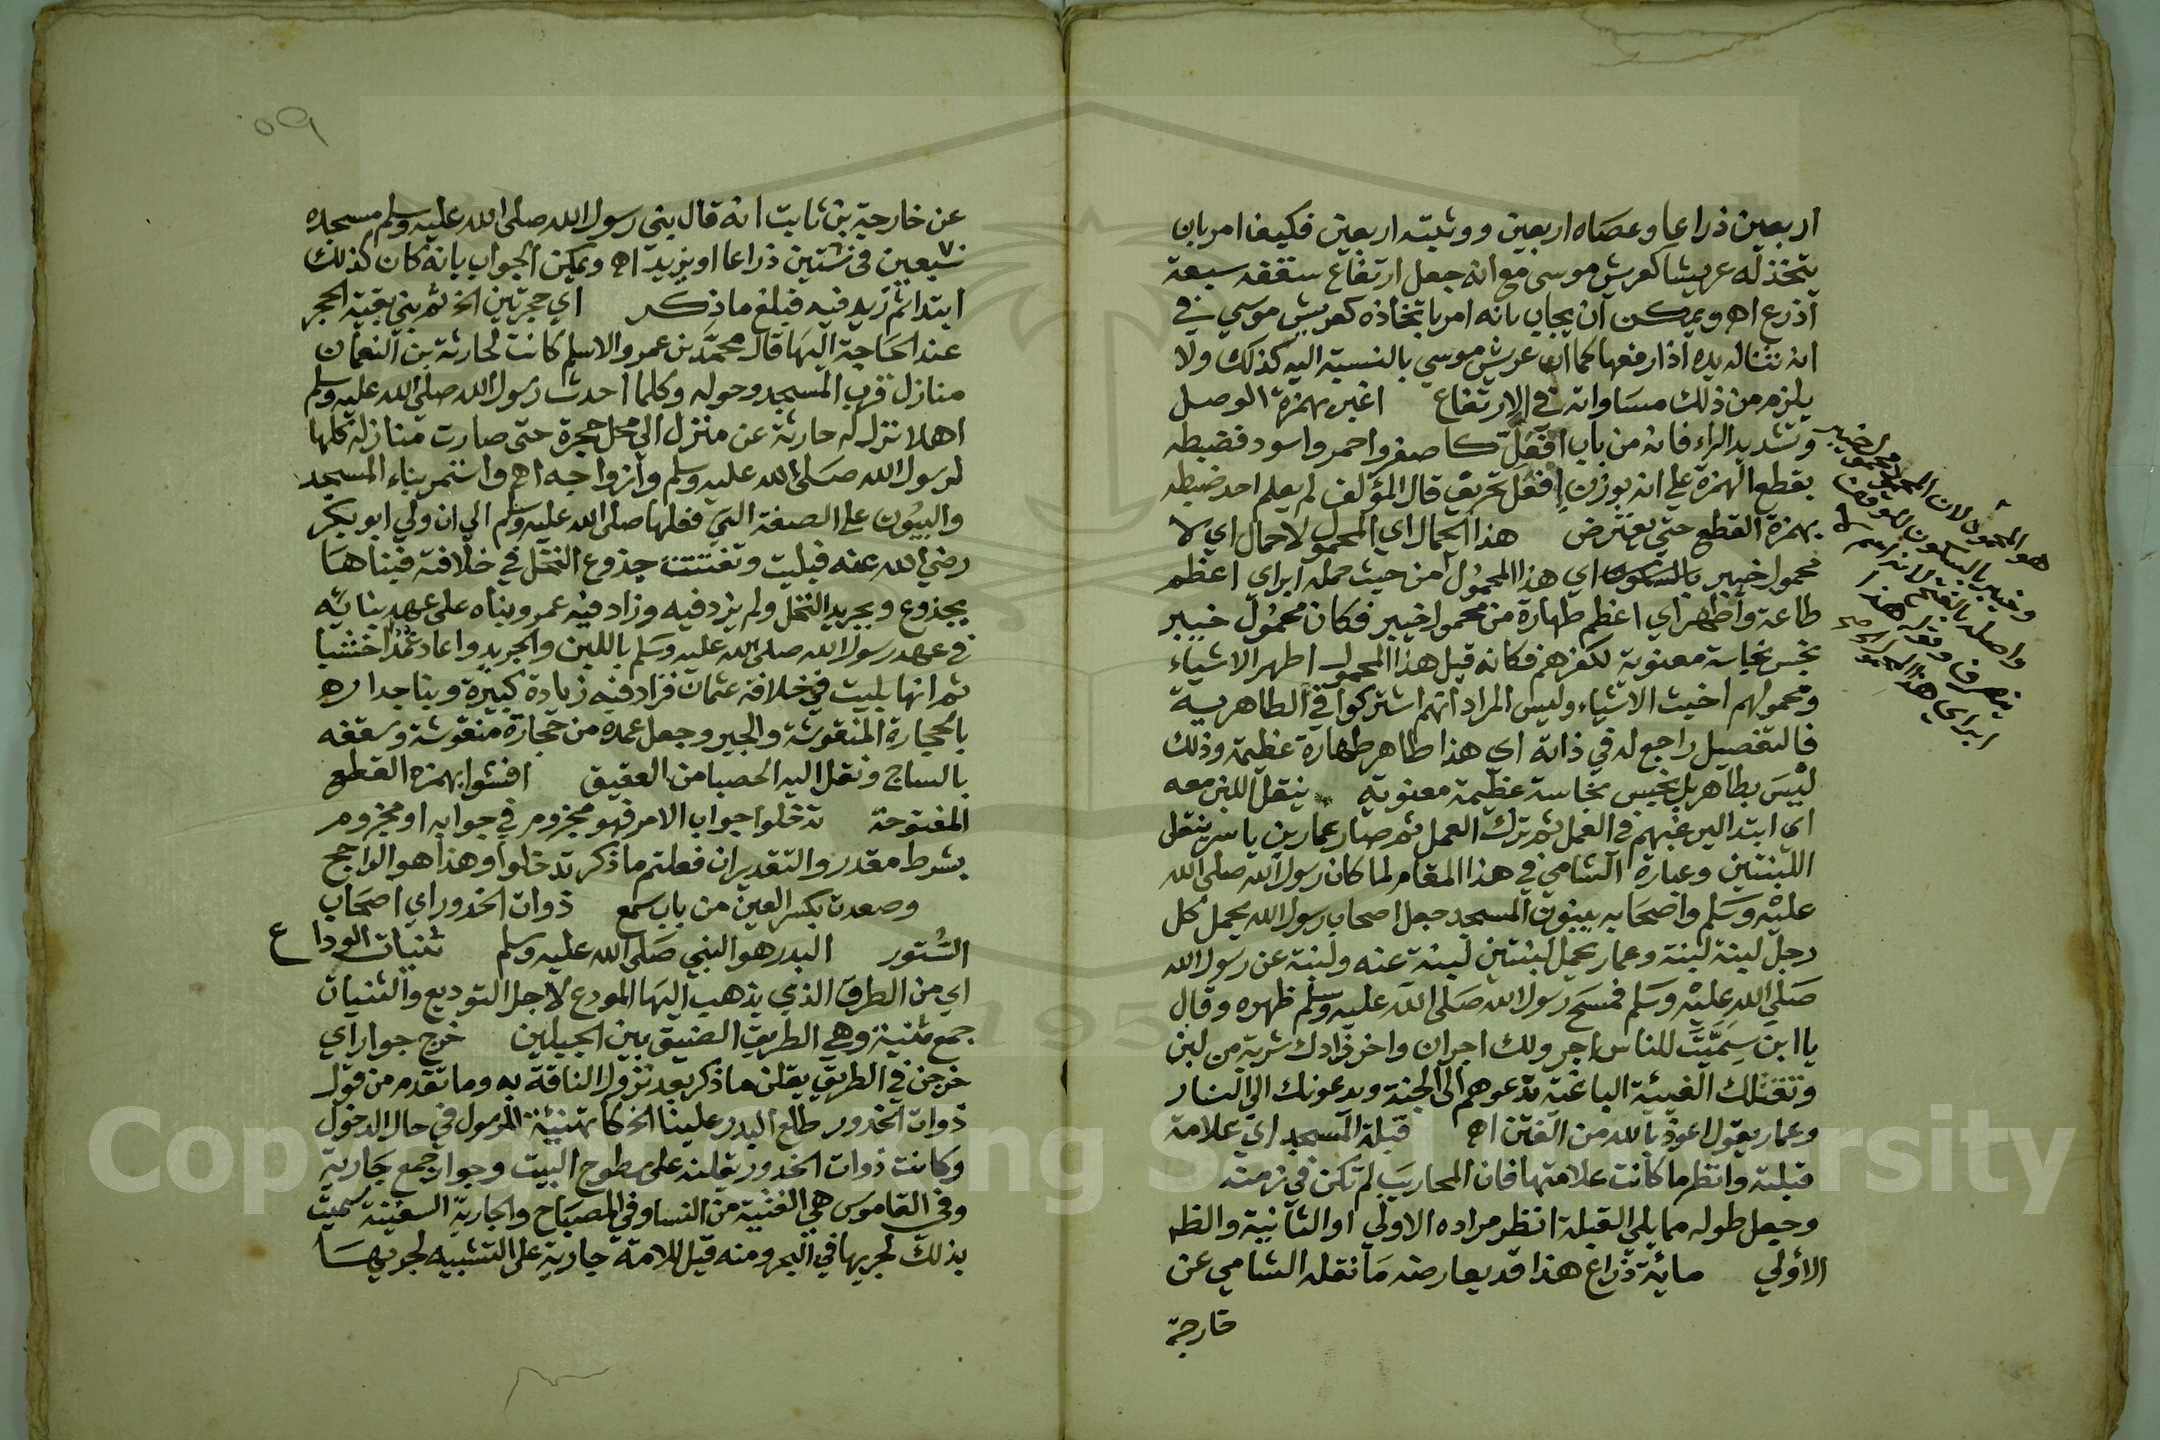 اربعين ذراعا وعصاه اربعين ووثبته اربعين فكيف امر بان
يتخذ له عريشا كعريش موسى مع انه جعل ارتفاع سقفه سبعة
اذرع اه ويمكن ان يجاب بانه امر باتخاذه كعريش موسي في
انه تناله يده اذا رفعها كما ان عريش موسي بالنسبة اليه كذلك ولا
يلزم من ذلك مساواته في الارتفاع اغبر بهمزة الوصل
وتشديد الراء فانه من باب افعلّ كاصفر واحمر واسود فضبطه
بقطع الهمزة علي انه بوزن افعل تحريف قال المؤلف لم يعلم احد ضبطه
بهمزة القطع حتي يعترض هذا الحمال اي المحمول لا حمال اي لا
محمول خيبر اي هذا المحمول من حيث حمله ابر اي اعظم
طاعة واطهر اي اعظم طهارة من محمول خيبر فكان محمول خيبر
نجس نجاسة معنوية لكفرهم فكانه قيل هذا المحمول اطهر الاشياء
ومحمولهم اخبث الاشياء وليس المراد انهم اشتركوا في الطاهرية
فالتفصيل راجع له في ذاته اي هذا طاهر طهارة عظيمة وذلك
ليس بطاهر بل نجس نجاسة عظيمة معنوية ينقل اللبن معه
اي ابتدا ليرغبهم في العمل ثم ترك العمل ثم صار عمار بن ياسر ينقل
اللبنتين وعبارة الشامي في هذا المقام لما كان رسول الله صلى الله
عليه وسلم واصحابه يبنون المسجد جعل اصحاب رسول الله يحمل كل
رجل لبنة لبنة وعمار يحمل لبنتين لبنة عنه ولبنة عن رسول الله
صلي الله عليه وسلم فمسح رسول الله صلى الله عليه وسلم ظهره وقال
يا ابن سميّة للناس اجر ولك اجران واخر زادك شربة من لبن
وتقتلك الفيئة الباغية تدعوهم الى الجنة ويدعونك الي النار
وعمار يقول اعوذ بالله من الفتن اه قبلة المسجد اي علامة
قبلته وانظر ما كانت علامتها فان المحاريب لم تكن في زمنه
وجعل طوله مما يلي القبلة انظر مراده الاولي او الثانية والظ
الأولي مائة ذراع هذا قد يعارضه ما نقله الشامي عن
خارجة
هو المحمول لان
وخيبر بالسكون للوقف
واصله بالفتح لانه اسم لا
ينصرف وقوله هذا
ابر اي هذا المحمول
٥٩
عن خارجة بن ثابت انه قال بني رسول الله صلى الله عليه وسلم مسجده
سبعين في ستين ذراعا او يزيد اه ويمكن الجواب بانه كان كذلك
ابتدا ثم زيد فيه فبلغ ما ذكر اي حجرتين الخ ثم بني بقية الحجر
عند الحاجة اليها قال محمد بن عمر والاسلم كانت لحارثة بن النعمان
منازل قرب المسجد وحوله وكلما احدث رسول الله صلى الله عليه وسلم
اهلا نزل له حارثة عن منزل الي محل حجرة حتى صارت منازله كلها
لرسول الله صلى الله عليه وسلم وازواجه اه واستمر بناء المسجد
والبيوت على الصفة التي فعلها صلى الله عليه وسلم الي ان ولي ابو بكر
رضي الله عنه فبليت وتفتتت جذوع النخل في خلافته فبناها
بجذوع وبجريد النخل ولم يزد فيه وزاد فيه عمر وبناه على عهد بنائه
في عهد رسول الله صلى الله عليه وسلم باللبن والجريد واعاد عُمُدا خشبا
ثم انها بليت في خلافة عثمان فزاد فيه زيادة كبيرة وبنا جداره
بالحجارة المنقوشة والجير وجعل عمده من حجارة منقوشة وسقفه
بالساج ونقل اليه الحصبا من العقيق افشوا بهمزة القطع
المفتوحة تدخلوا جواب الامر فهو مجزوم في جوابه او مجزوم
بشرط مقدر والتقدير ان فعلتم ما ذكر تدخلوا وهذا هو الراجح
وصعدت بكسر العين من باب سمع ذوات الخدور اي اصحاب
السُتور البدر هو النبي صلى الله عليه وسلم ثنيات الوداع
اي من الطرق الذي يذهب اليها المودع لاجل التوديع والثنيات
جمع ثنية وهي الطريق الضيق بين الجبلين خرج جوار اي
خرجن في الطريق يقلن ما ذكر بعد نزول الناقة به وما تقدم من قول
ذوات الخدور طلع البدر علينا الخ كا تهنئة للرسول في حال الدخول
وكانت ذوات الخدور يقلنه على سطوح البيت وجوار جمع جارية
وفي القاموس هي الفتية من النسا وفي المصباح والجارية السفينة سميت
بذلك لجريها في البحر ومنه قيل للامة جارية على التشبيه لجريها
Copyright © King Saud University
195